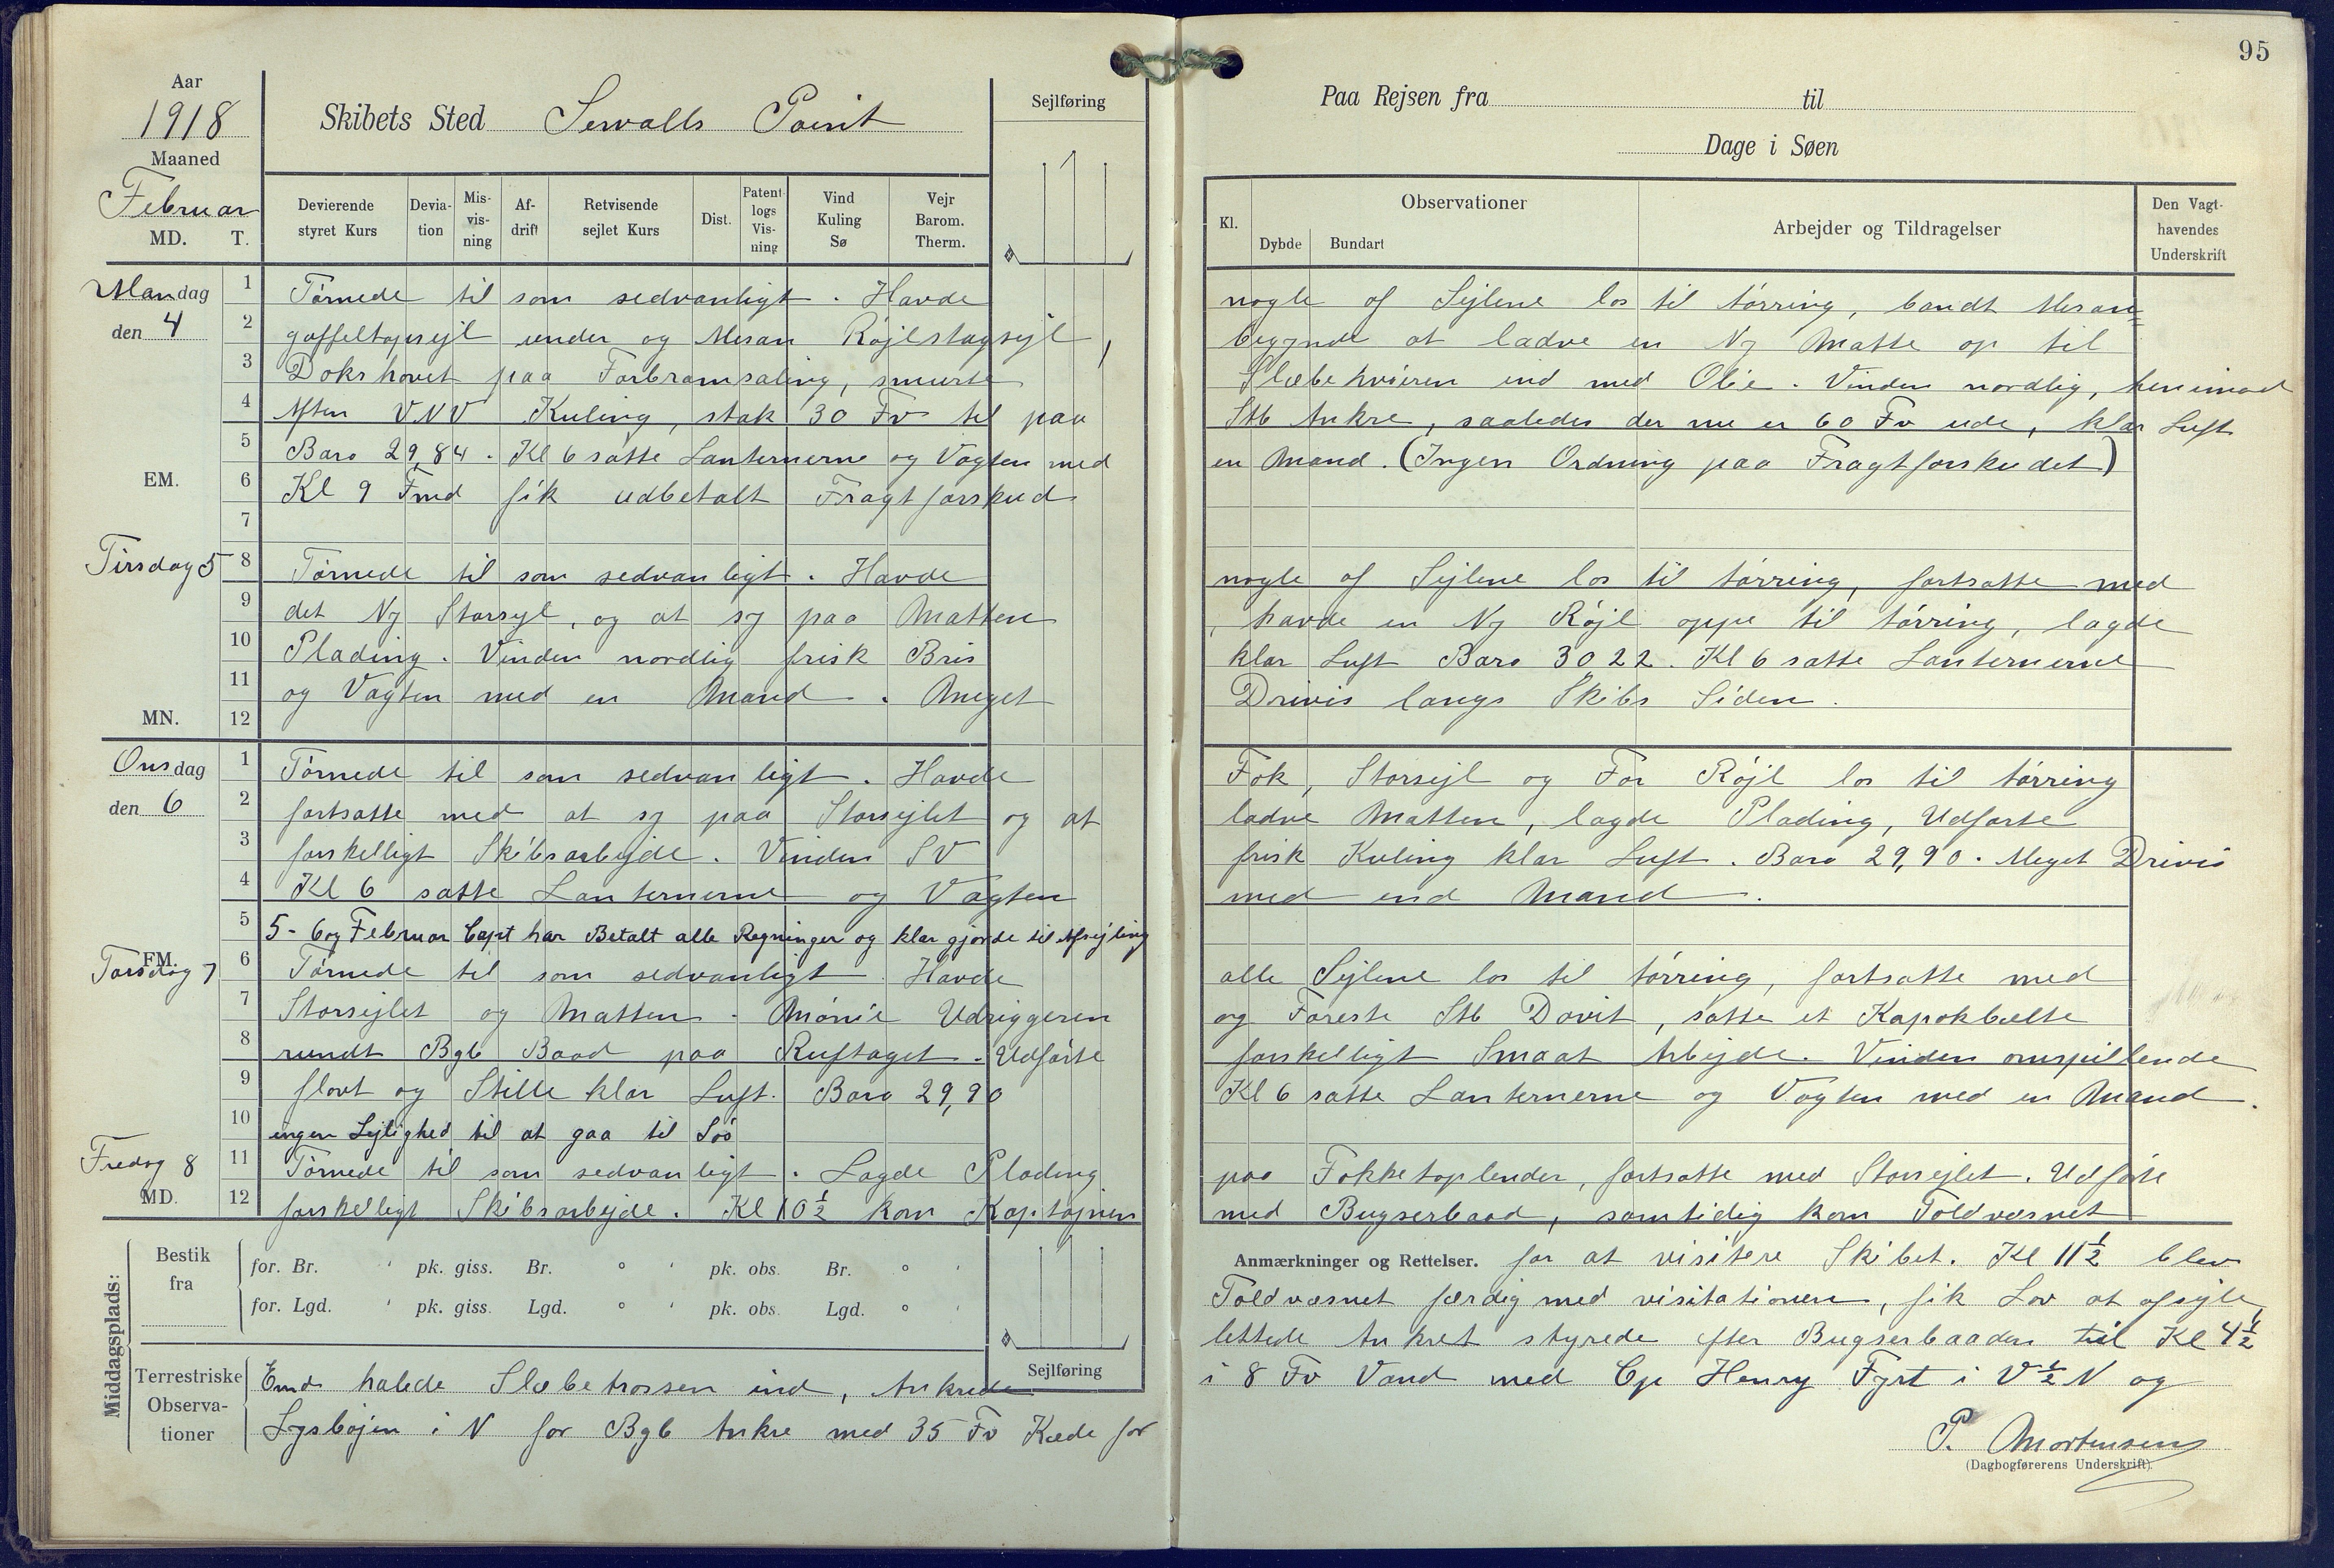 95
Aar
1918
Maaned
Februar
MD. T.
Skibets Sted Sewalls Point
Sejlføring
Paa Rejsen fra til
Dage i Søen
Devierende styret Kurs
Deviation
Misvisning
Afdrift
Retvisende sejlet Kurs
Dist.
Patentlogs Visning
Vind Kuling Sø
Vejr Barom. Therm.
Kl.
Observationer
Dybde Bundart
Arbejder og Tildragelser
Den Vagthavendes Underskrift
Mandag den 4
1 Törnede til som sedvanligt. Havde nogle af Sejlene los til törring, bandt Mesan=
2 gaffeltopsejl under og Mesan Röjlstagsejl, begynde at ladve en Ny Matte op til
3 Dokshovet paa Forbramsaling, smurte Slæbehvieren ind med Olie. Vinden nordlig, henimod
4 Aften VNV Kuling, stak 30 Fv til paa Stb Ankre, saaledes der nu er 60 Fv ude, klar Luft
5 Baro 29,84. Kl 6 satte Lanternerne og Vagten med en Mand. (Ingen Ordning paa Fragtforskudet)
EM.
6 Kl 9 Fmd fik udbetalt Fragtforskud
7
Tirsdag 5
8 Törnede til som sedvanligt. Havde nogle af Sejlene los til törring, fortsatte med
9 det Ny Storsejl, og at sy paa Matten, havde en Ny Röjl oppe til törring, lagde
10 Plading. Vinden nordlig frisk Bris klar Luft Baro 3022. Kl 6 satte Lanternerne
11 og Vagten med en Mand. Meget Drivis langs Skibs Siden.
MN. 12
Onsdag den 6
1 Törnede til som sedvanligt. Havde Fok, Storsejl og For Röjl los til törring
2 fortsatte med at sy paa Storsejlet og at ladve Matten, lagde Plading, Udförte
3 forskelligt Skibsarbejde. Vinden SV frisk Kuling klar Luft. Baro 29,90. Meget Drivis
4 Kl 6 satte Lanternerne og Vagten med end Mand.
5 5-6 og Februar Capt har Betalt alle Regninger og klar gjorde til Afsejling
FM.
Torsdag 7
6 Törnede til som sedvanligt. Havde alle Sejlene los til törring, fortsatte med
7 Storsejlet og Matten. Mönie Udriggeren og Foreste Stb Davit, satte et Kapokbælte
8 rundt Bgb Baad paa Ruftaget. Udförte forskelligt Smaat Arbejde. Vinden omspillende
9 flovt og Stille klar Luft. Baro 29,90 Kl 6 satte Lanternerne og Vagten med en Mand.
10 ingen Lejlighed til at gaa til Söö
Fredag 8
11 Törnede til som sedvanligt. Lagde Plading paa Fokketoplender, fortsatte med Storsejlet. Udförte
MD.
12 forskelligt Skibsarbejde. Kl 10½ kom Kaptajnen med Bugserbaad, samtidig kom Toldvæsnet
Anmærkninger og Rettelser. for at visitere Skibet. Kl 11½ blev
Toldvæsnet færdig med visitationen, fik Lov at afsejle,
lettede Ankret styrede efter Bugserbaaden til Kl 4½
Middagsplads:
Bestik fra
for. Br. ' pk. giss. Br. ° ' pk. obs. Br. ° '
for. Lgd. ' pk. giss. Lgd. ° ' pk. obs. Lgd. ° '
Sejlføring
Terrestriske Observationer
Emd halede Slæbetrossen ind, Ankrede i 8 Fv Vand med Cp Henry Fyrt i V½N og
Lysböjen i N for Bgb Ankre med 35 Fv Kæde for
P. Mortensen
(Dagbogførerens Underskrift).